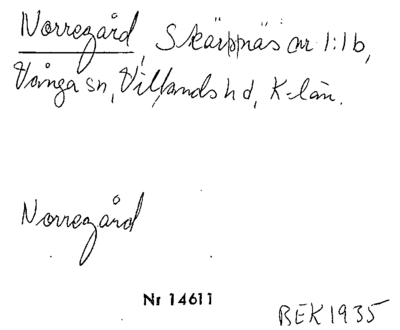 Norregård, Skärpnäs nr 1:1b,
Vånga sn, Villands hd, K-län.
Norregård
Nr 14611
BEK 1935